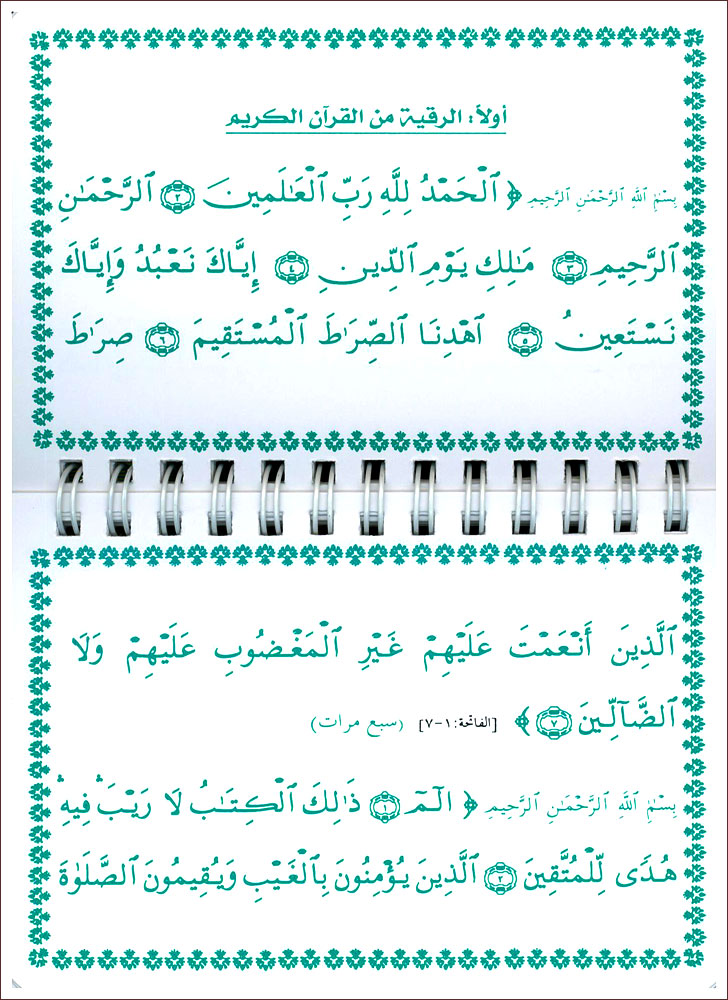 أولاً: الرقية من القرآن الكريم
بِسْمِ اللَّهِ الرَّحْمَٰنِ الرَّحِيمِ ﴿ ٱلْحَمْدُ لِلَّهِ رَبِّ ٱلْعَـٰلَمِينَ ٢ ٱلرَّحْمَـٰنِ
ٱلرَّحِيمِ ٣ مَـٰلِكِ يَوْمِ ٱلدِّينِ ٤ إِيَّاكَ نَعْبُدُ وَإِيَّاكَ
نَسْتَعِينُ ٥ ٱهْدِنَا ٱلصِّرَٰطَ ٱلْمُسْتَقِيمَ ٦ صِرَٰطَ
ٱلَّذِينَ أَنْعَمْتَ عَلَيْهِمْ غَيْرِ ٱلْمَغْضُوبِ عَلَيْهِمْ وَلَا
ٱلضَّآلِّينَ ٧ ﴾ [الفاتحة: ١-٧] (سبع مرات)
بِسْمِ اللَّهِ الرَّحْمَٰنِ الرَّحِيمِ ﴿ الٓمٓ ١ ذَٰلِكَ ٱلْكِتَـٰبُ لَا رَيْبَ ۛ فِيهِ ۛ
هُدًى لِّلْمُتَّقِينَ ٢ ٱلَّذِينَ يُؤْمِنُونَ بِٱلْغَيْبِ وَيُقِيمُونَ ٱلصَّلَوٰةَ